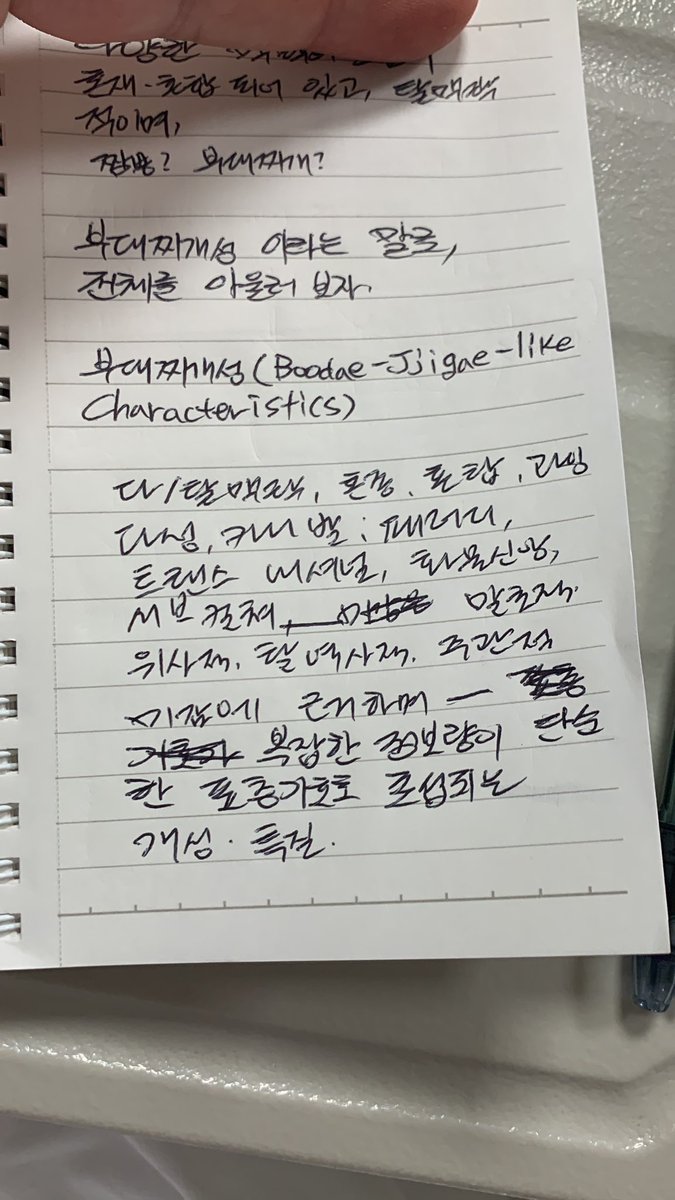 다양한
혼재·포합 되어 있고, 탈맥락
적이며,
짬뽕? 부대찌개?
부대찌개성 이라는 말로,
전체를 아울러 보자.
부대찌개성 (Boodae-Jjigae-like
Characteristics)
다/탈맥락, 혼종, 포합, 과잉
다성, 카니발; 패러디,
트랜스 내셔널, 화물신앙,
서브컬쳐, 말초적.
위사적. 탈역사적. 주관적
에 근거하며 —
복잡한 정보량이 단순
한 표층기호로 포섭되는
개성·특질.